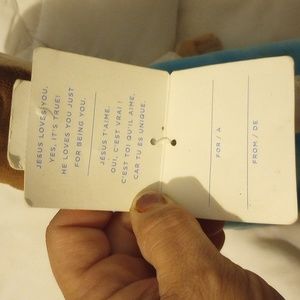 JESUS LOVES YOU.
YES, IT'S TRUE!
HE LOVES YOU JUST
FOR BEING YOU.
JÉSUS T'AIME,
OUI, C'EST VRAI !
C'EST TOI QU'IL AIME,
CAR TU ES UNIQUE.
FOR / À
FROM / DE